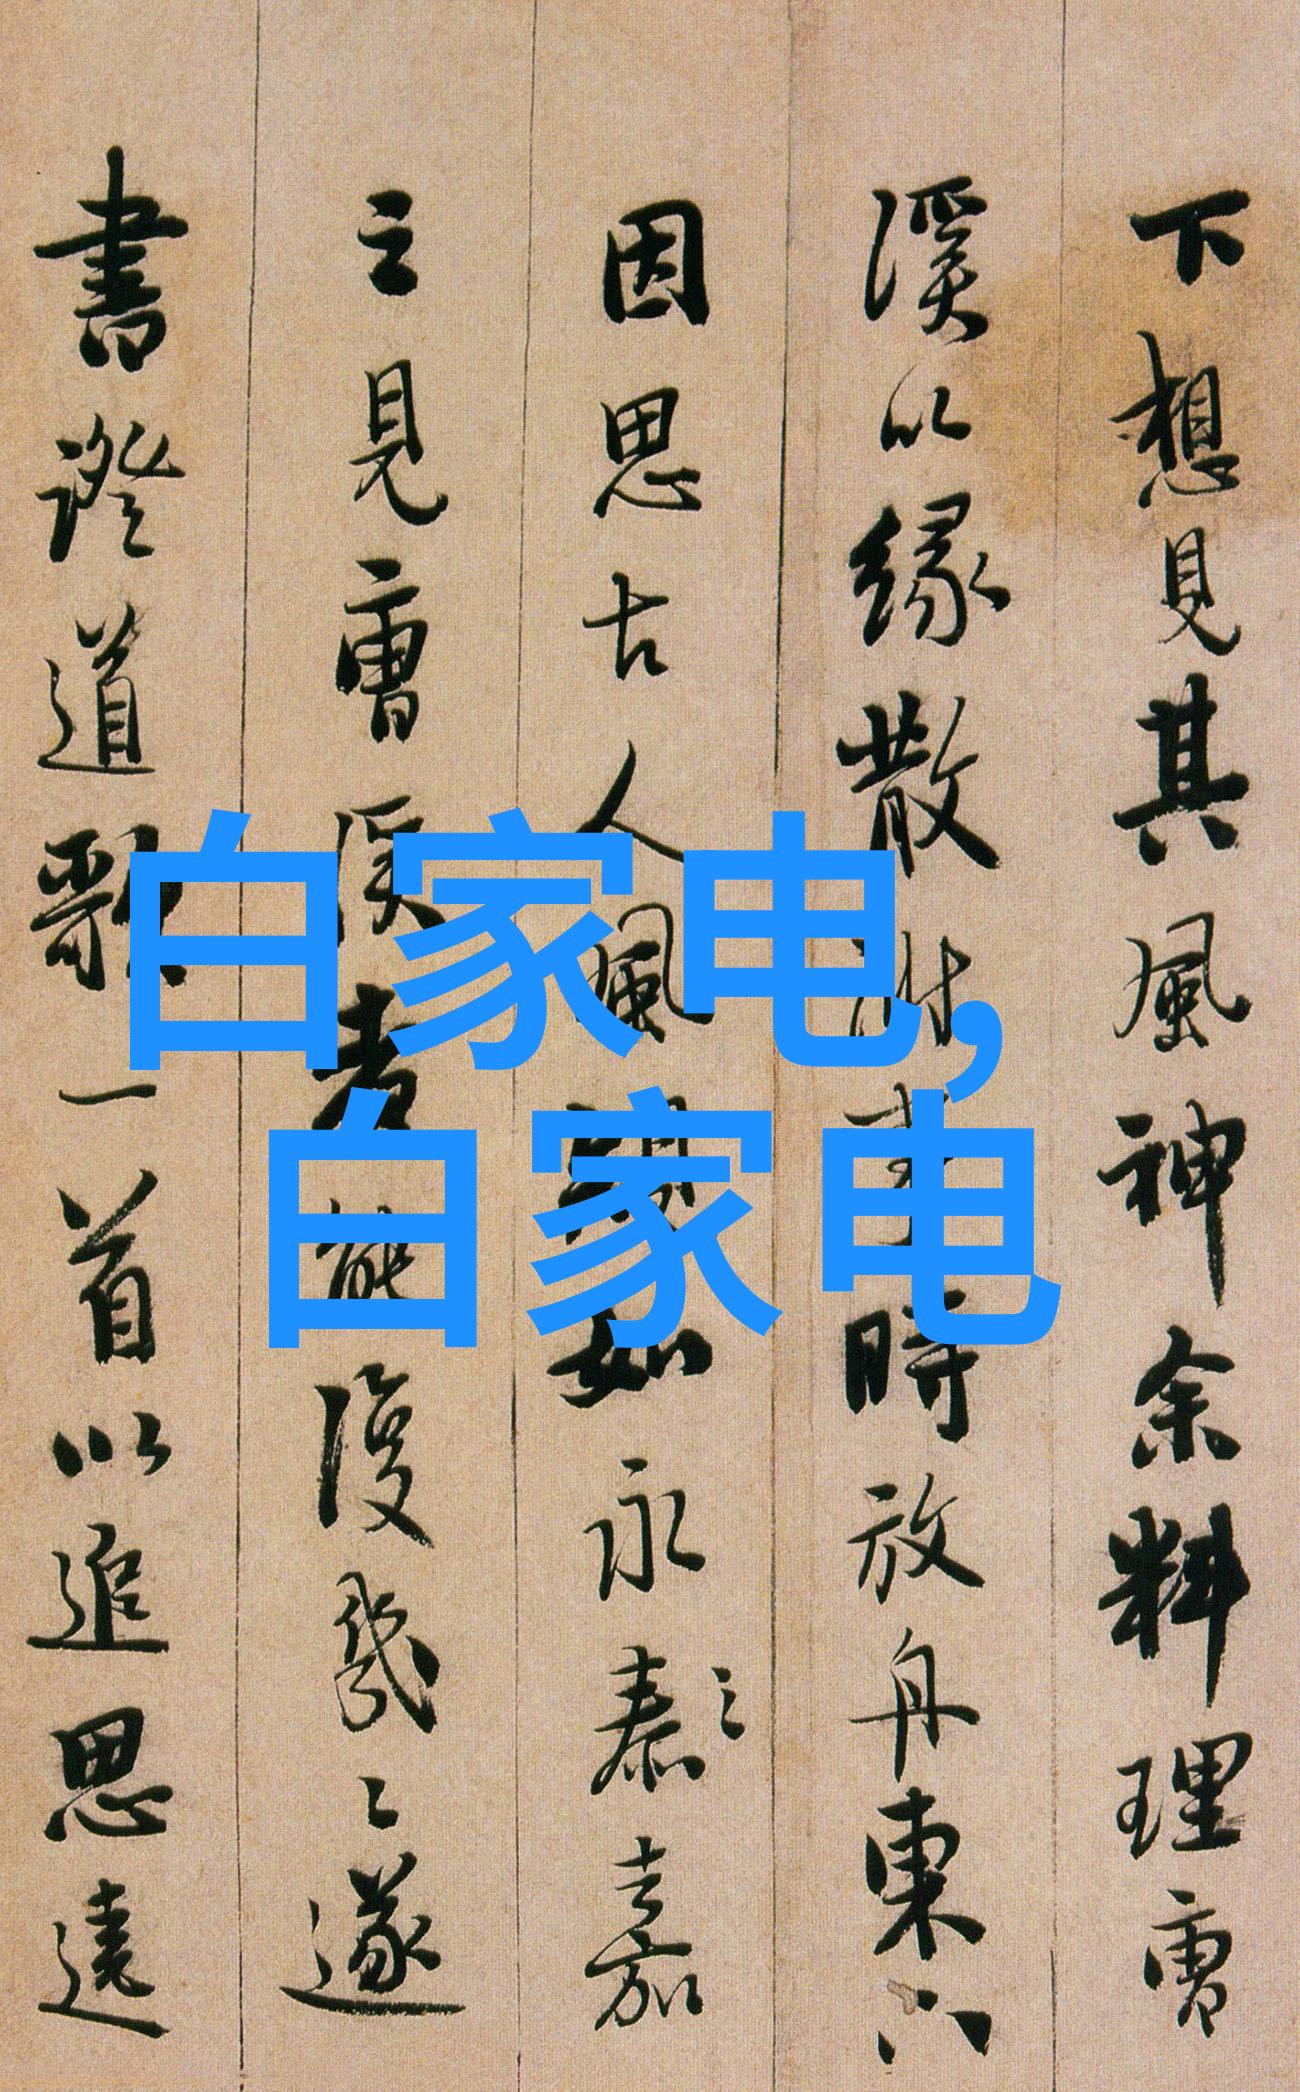 下想見其風神余料理曹
溪以緣散 時放舟東下
因思古人風 如永泰之
嘉
之見曹溪者能復幾之遂
書證道歌一首以追思遠
白家电,
白家电